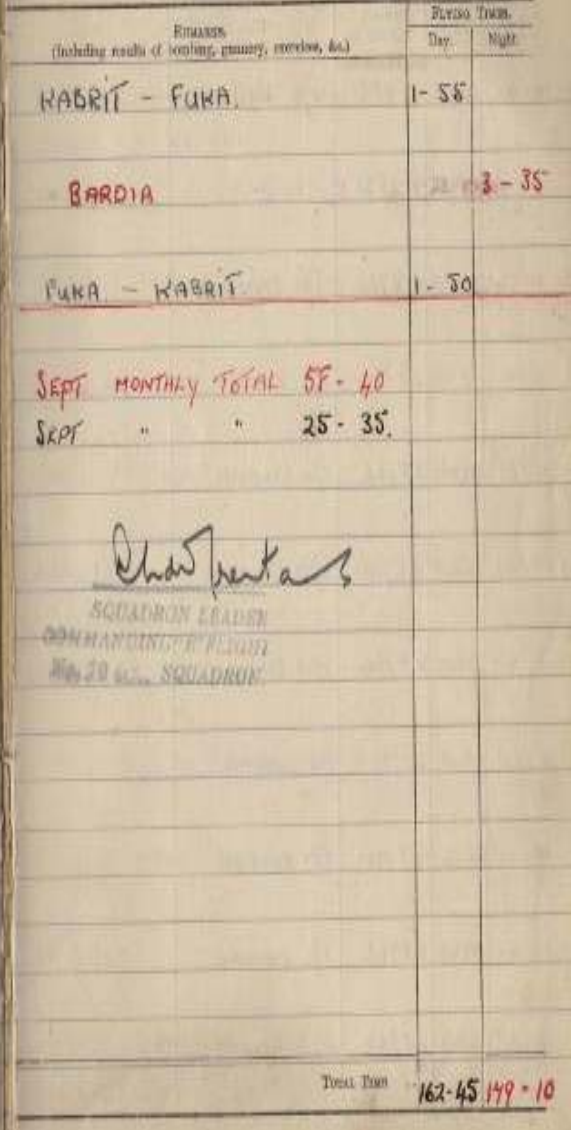 REMARKS. FLYING TIMES.
(Including results of bombing, gunnery, exercises, &c.) Day. Night.
KABRIT - FUKA. 1-55
BARDIA 3-35
FUKA - KABRIT 1-50
SEPT MONTHLY TOTAL 58-40
SEPT " " 25-35.
SQUADRON LEADER
COMMANDING FLIGHT
No. 70 SQUADRON.
TOTAL TIME 162-45 149-10